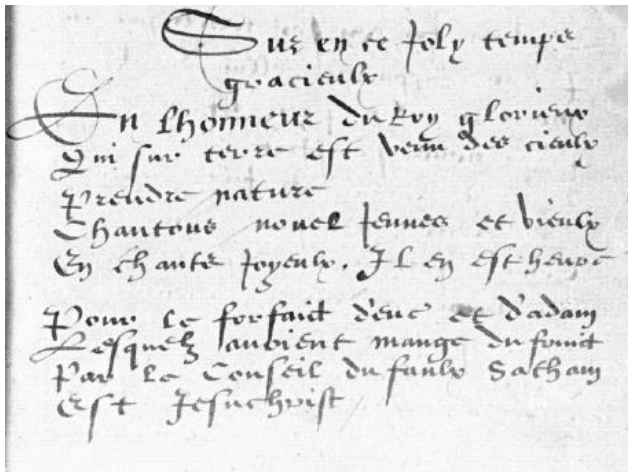 Sur en ce Joly temps
gracieulx
En lhonneur du Roy glorieux
Qui sur terre est venu des cieulx
Prendre nature
Chantons nouel Jeunes et vieulx
En chants Joyeulx. Il en est heure
Pour le forfaict d'eue et d'adam
Lesquelz auoient mange du fruict
Par le Conseil du faulx Sathan
Est Jesuchrist